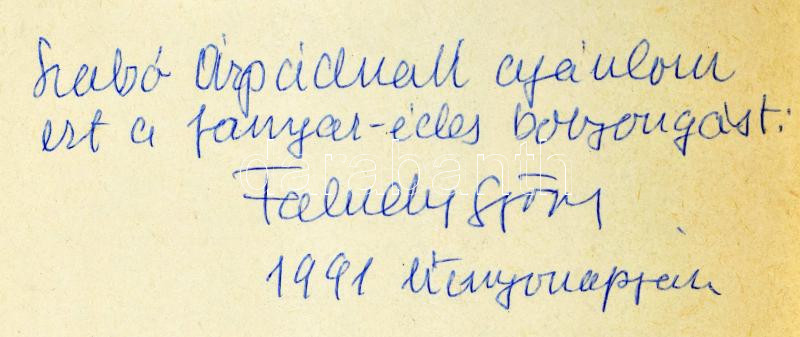 Szabó Árpádnak ajánlom
ezt a fanyar-édes bolyongást:
Faludy György
1991 Könyvnapján
darabanth